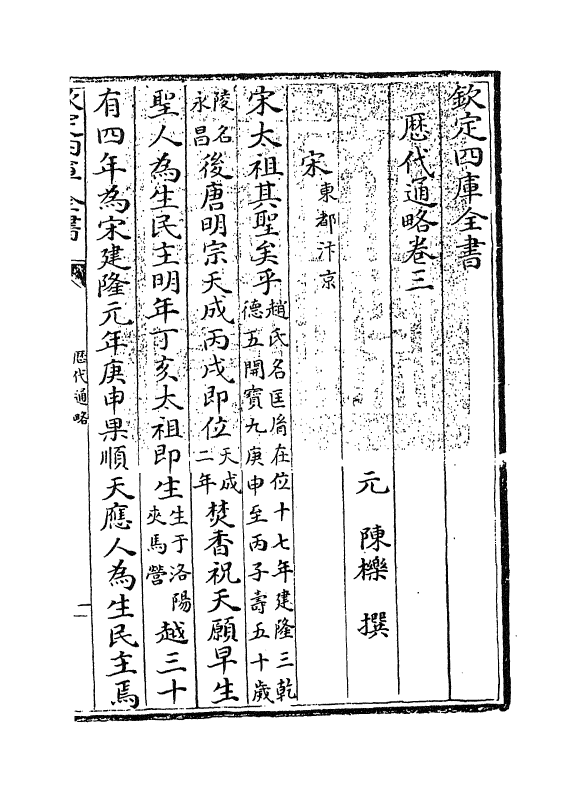 欽定四庫全書
歴代通略卷三
元 陳櫟 撰
宋東都汴京
宋太祖其聖矣乎趙氏名匡胤在位十七年建隆三乾德五開寶九庚申至丙子壽五十歲
陵名永昌後唐明宗天成丙戌即位天成二年焚香祝天願早生
聖人為生民主明年丁亥太祖即生生于洛陽夾馬營越三十
有四年為宋建隆元年庚申果順天應人為生民主焉
欽定四庫全書
歴代通略